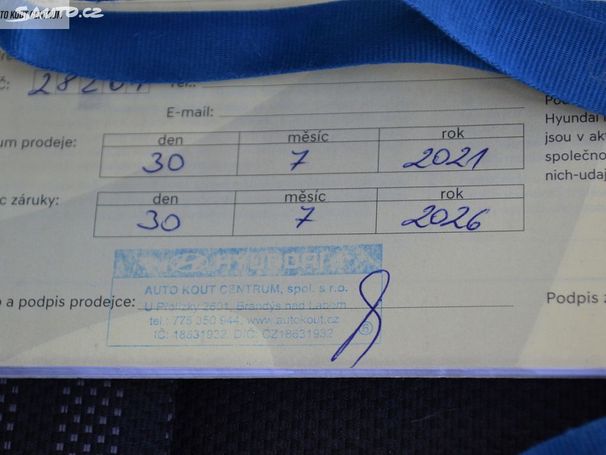 AUTO KOUT CENTRUM
Sauto.cz
28201 Tel.:
E-mail:
um prodeje: den měsíc rok
30 7 2021
c záruky: den měsíc rok
30 7 2026
HYUNDAI
AUTO KOUT CENTRUM, spol. s r.o.
2601, Brandýs nad Labem
tel.: 775 350 944, www.autokout.cz
IČ: 18631932, DIČ: CZ18631932
o a podpis prodejce:
Hyundai
jsou v ak
společno
nich-udaj
Podpis z